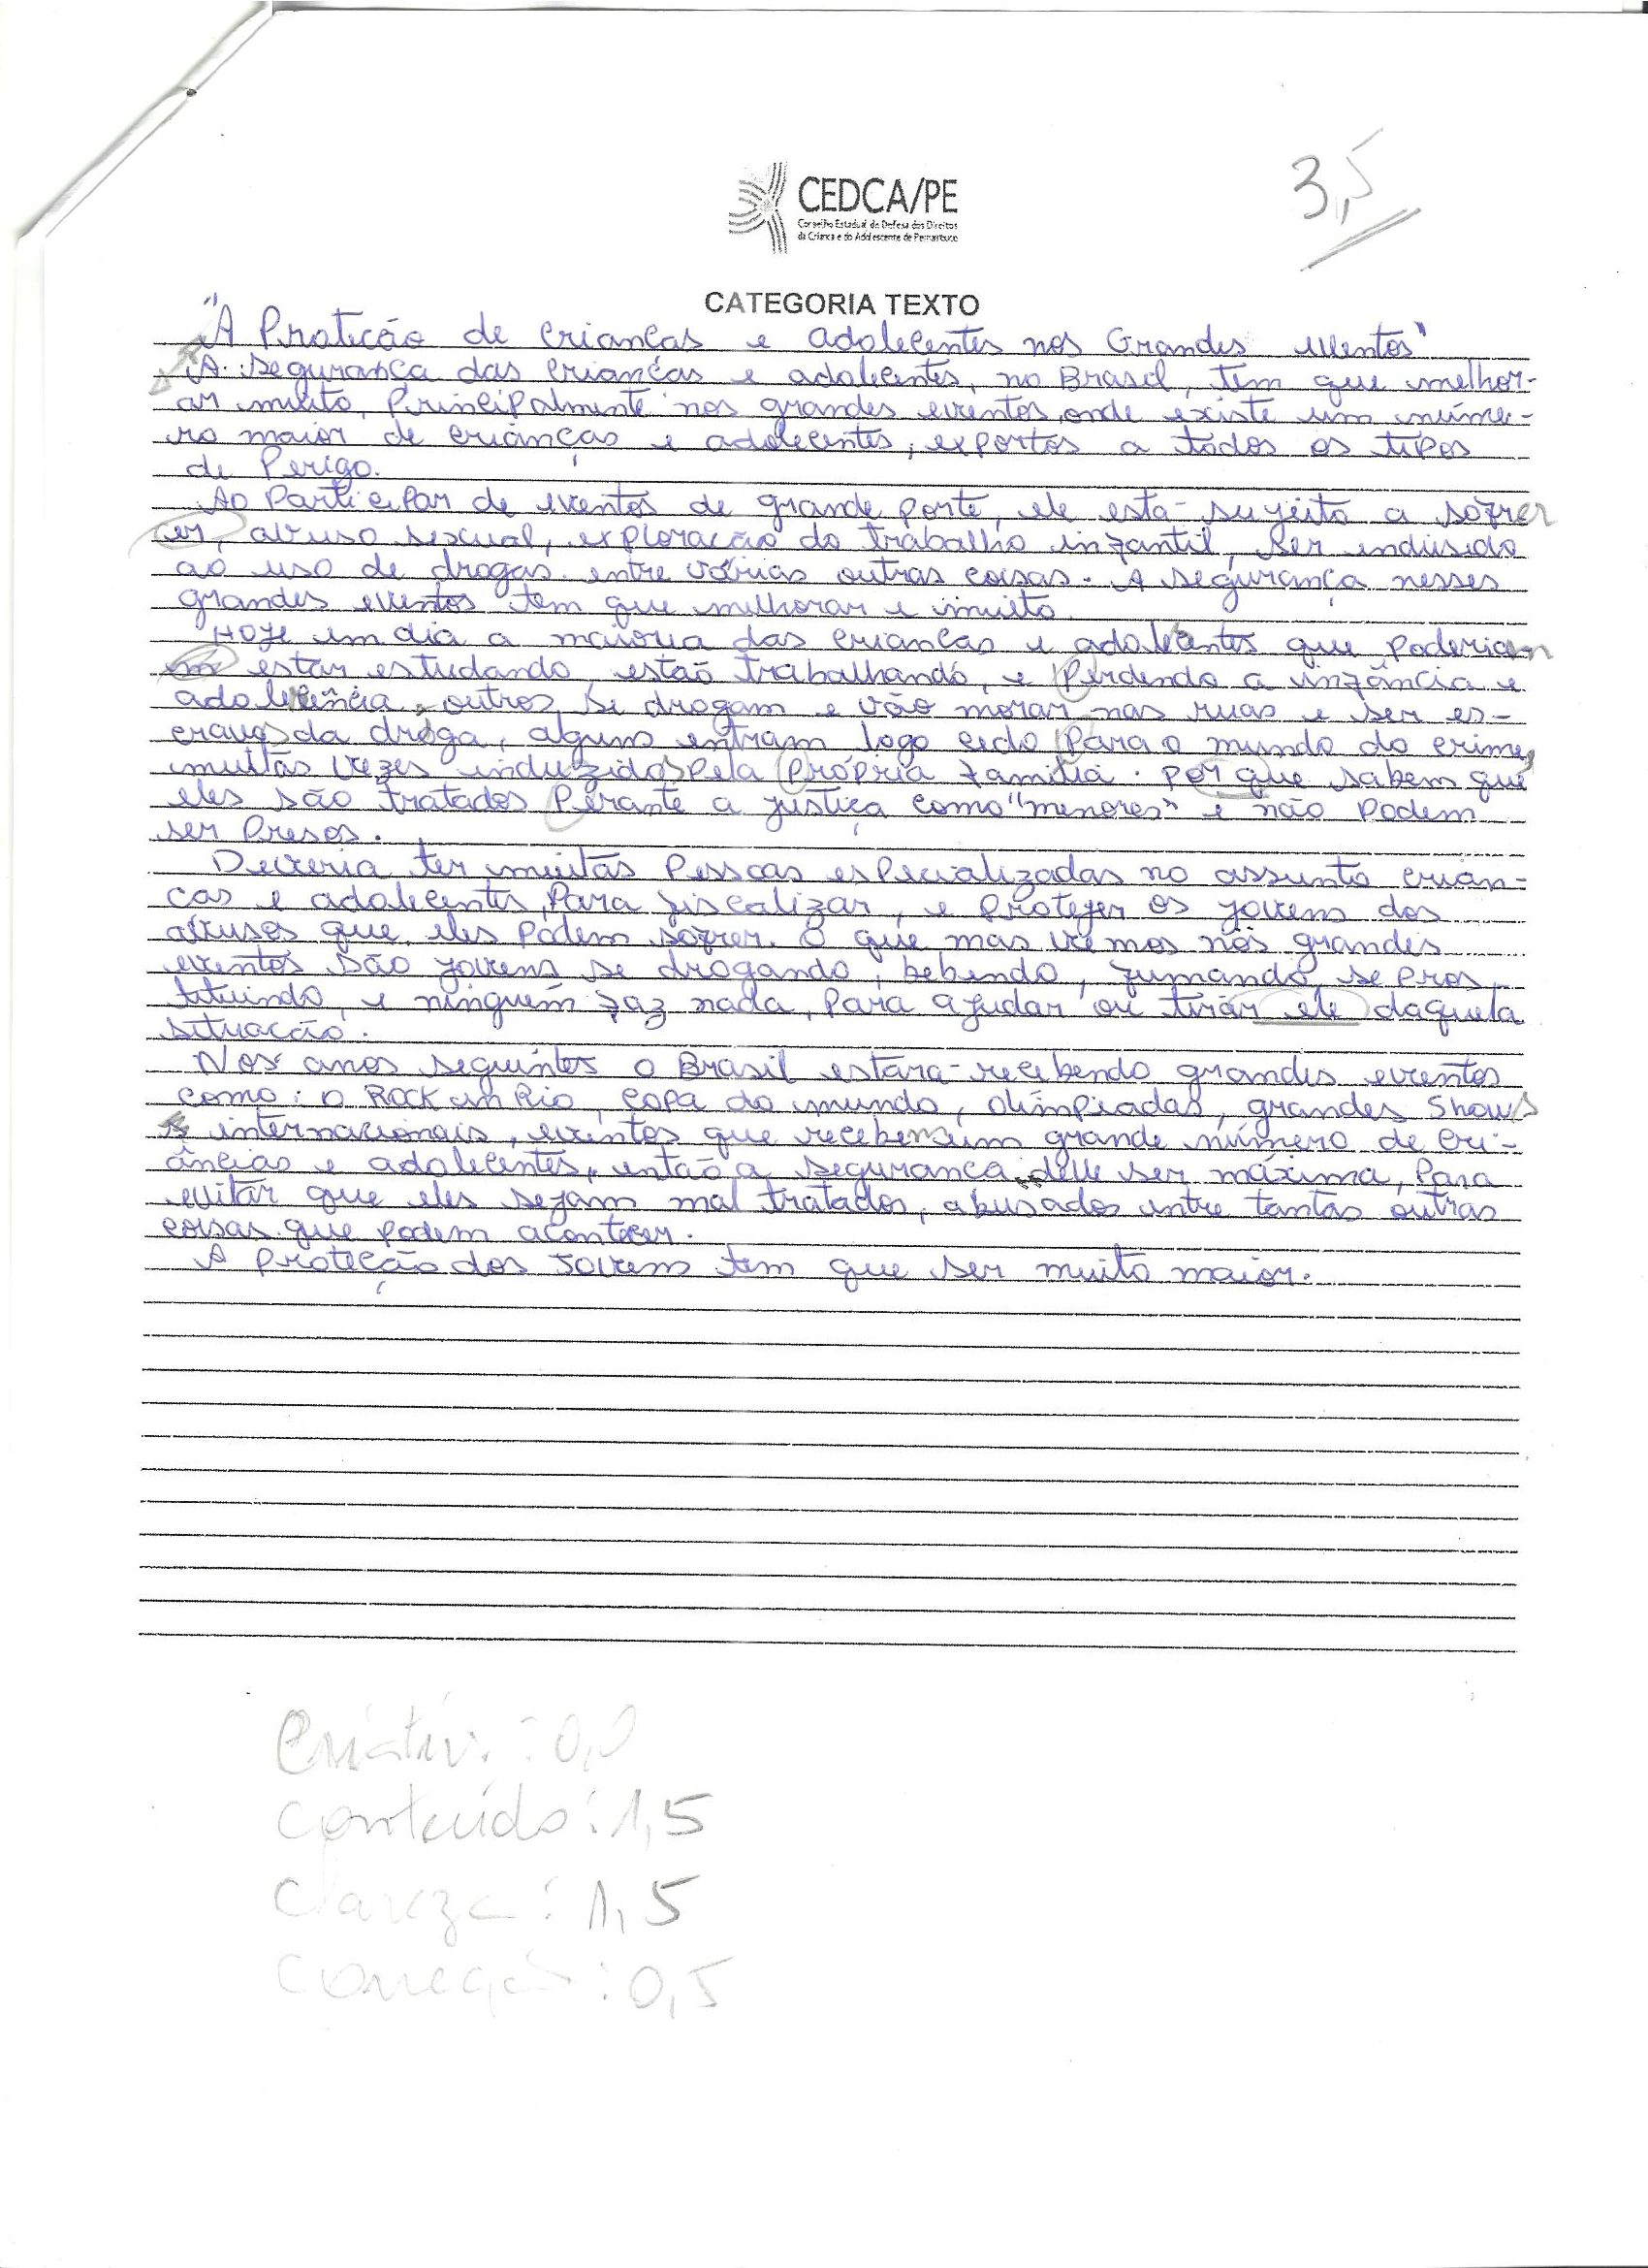 3,5
CEDCA/PE
Conselho Estadual de Defesa dos Direitos
da Criança e do Adolescente de Pernambuco
CATEGORIA TEXTO
"A Proteção de crianças e adolecentes nos Grandes eventos"
A segurança das crianças e adolecentes, no Brasil, tem que melhor-
ar muito, Principalmente nos grandes eventos, onde existe um núme-
ro maior de crianças e adolecentes, expostos a todos os tipos
de Perigo.
Ao Participar de eventos de grande porte, ele está sujeito a sofrer
er, abuso sexual, exploração do trabalho infantil, ser indusido
ao uso de drogas. entre várias outras coisas. A segurança nesses
grandes eventos tem que melhorar e muito.
Hoje em dia a maioria das crianças e adolecentes que poderiam
estar estudando, estão trabalhando, e Perdendo a infância e
adolecência, outros se drogam e vão morar nas ruas e ser es-
cravos da droga, alguns entram logo cedo Para o mundo do crime,
muitas vezes induzidos pela Própria família. Por que sabem que
eles são tratados Perante a justiça como "menores" e não Podem
ser Presos.
Deveria ter muitas Pessoas especializadas no assunto crian-
cas e adolecentes, Para fiscalizar, e proteger os jovens dos
abusos que eles podem sofrer. O que mas vemos nos grandes
eventos são jovens se drogando, bebendo, fumando, se pros
tituindo, e ninguém faz nada, Para ajudar ou tirar ele daquela
situação.
Nos anos seguintes o Brasil estará recebendo grandes eventos
como: o Rock in Rio, copa do mundo, olimpiadas, grandes Shows
internacionais, eventos que recebem um grande número de cri-
âncias e adolecentes, então a segurança deve ser máxima, Para
evitar que eles sejam mal tratados, abusados entre tantas outras
coisas que podem acontecer.
A Proteção dos Jovens tem que ser muito maior.
Criativ.: 0,0
conteúdo: 1,5
clareza: 1,5
correção: 0,5